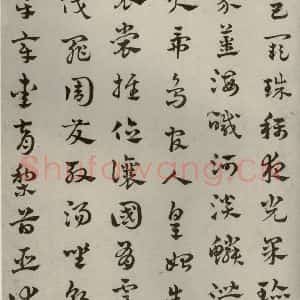 巨闕珠稱夜光果珍
芥薑海鹹河淡鱗潛
火帝鳥官人皇始制
裳推位讓國有虞
伐罪周發殷湯坐朝
平章愛育黎首臣伏
Shufawang.Cn